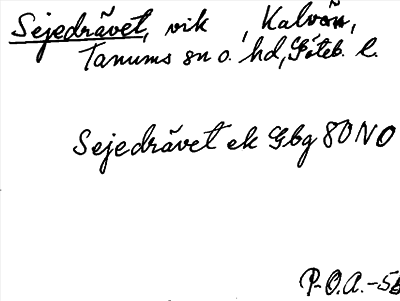 Sejedrävet, vik , Kalvön,
Tanums sn o. hd, Göteb. l.
Sejedrävet ek Gbg 80 NO
P-O.A.-56